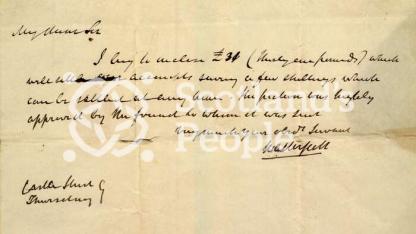 My dear Sir
I beg to inclose £31 (thirty one pounds) which
will settle our accounts saving a few shillings which
can be settled at any time. The picture was highly
approved by the friend to whom it was sent
Your obedt. Servant
Walter Scott
Castle Street
Thursday
Scotland's
People